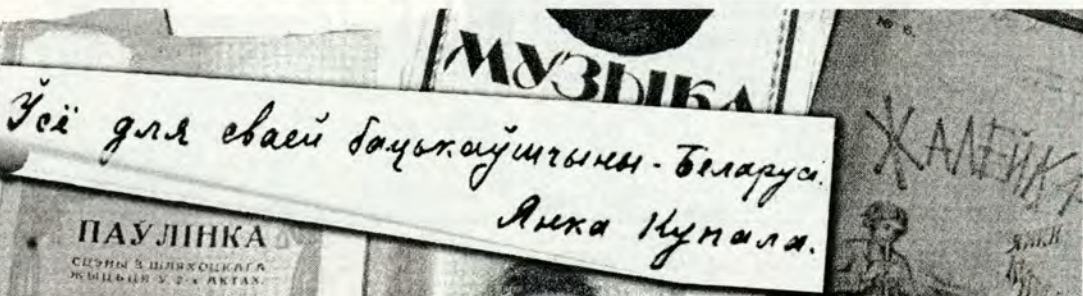 № 6.
МУЗЫКА
ЖАЛЕЙКА
Ўсё для сваей бацькаўшчыны - Беларусі.
Янка Купала.
ПАЎЛІНКА
СЦЭНЫ З ШЛЯХОЦКАГА
ЖЫЦЬЦЯ Ў 2-х АКТАХ.
ЯНКІ